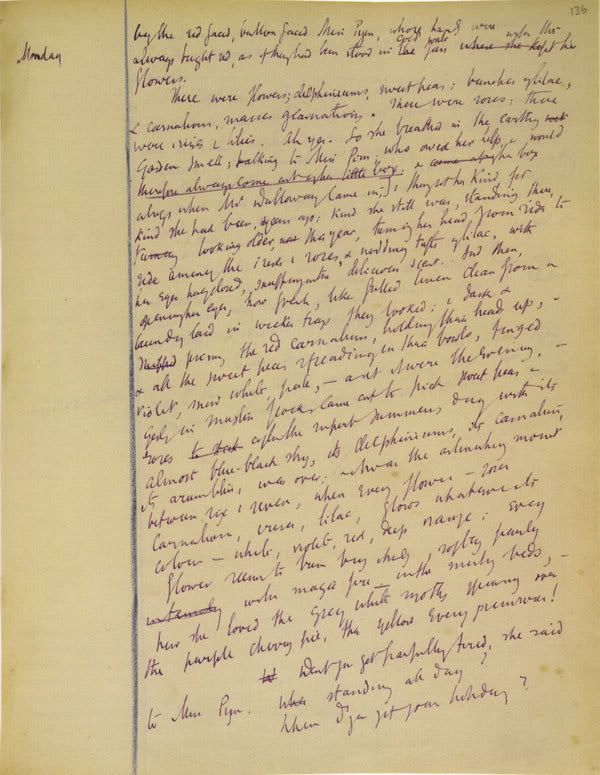 136
Monday
by the red faced, button faced Miss Pym, whose hands were
always bright red, as if they had been stood in cold water with the
flowers.
There were flowers; delphiniums, sweet peas; bunches of lilac;
& carnations, masses of carnations. There were roses; there
were irises & lilies. Ah yes. So she breathed in the earthy
garden smell; talking to Miss Pym, who owed her help, & would
therefore always come out of her little box
always, when Mrs Dalloway came in; & thought her kind, for
kind she had been, years ago; kind she still was, standing there,
looking older, this year, turning her head from side to
side among the irises & roses, & nodding tufts of lilac, with
her eyes half closed, snuffing in the delicious scent. And then,
opening her eyes, how fresh, like frilled linen clean from a
laundry laid in wicker trays they looked; & dark &
prim the red carnations, holding their heads up, -
& all the sweet peas spreading in their bowls, tinged
violet, snow white, pale, - as if it were the evening, -
girls in muslin frocks came out to pick sweet peas &
roses after the superb summer's day with its
almost blue-black sky, its delphiniums, its carnations,
its arum lilies, was over; & it was the moment
between six & seven, when every flower - roses
carnations, irises, lilac, glows whatever its
colour - white, violet, red, deep orange; every
flower seems to burn by itself, softly purely
with magic fire - in the misty beds, -
how she loved the grey white moths spinning over
the purple cherry pie, the yellow evening primroses!
Don't you get frightfully tired, she said
to Miss Pym. standing all day?
When d'you get your holiday?